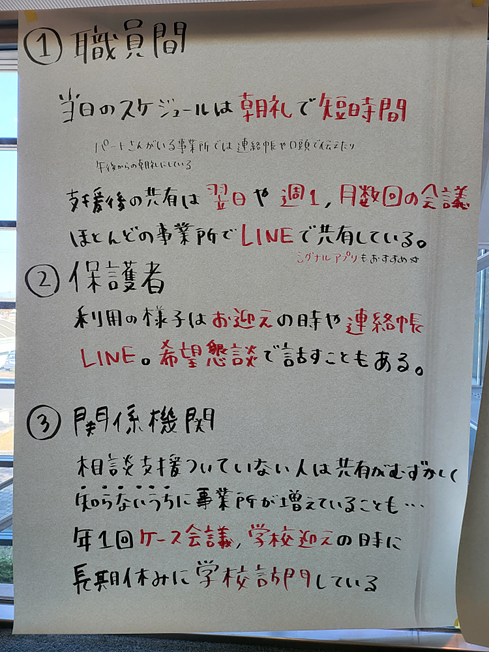 ① 職員間
当日のスケジュールは朝礼で短時間
パートさんがいる事業所では連絡帳や口頭で伝えたり
午後からの朝礼にしている
支援後の共有は翌日や週1,月数回の会議
ほとんどの事業所でLINEで共有している。
シグナルアプリもおすすめ☆
② 保護者
利用の様子はお迎えの時や連絡帳
LINE。希望懇談で話すこともある。
③ 関係機関
相談支援ついていない人は共有がむずかしく
知らないうちに事業所が増えていることも…
年1回ケース会議,学校迎えの時に
長期休みに学校訪問している